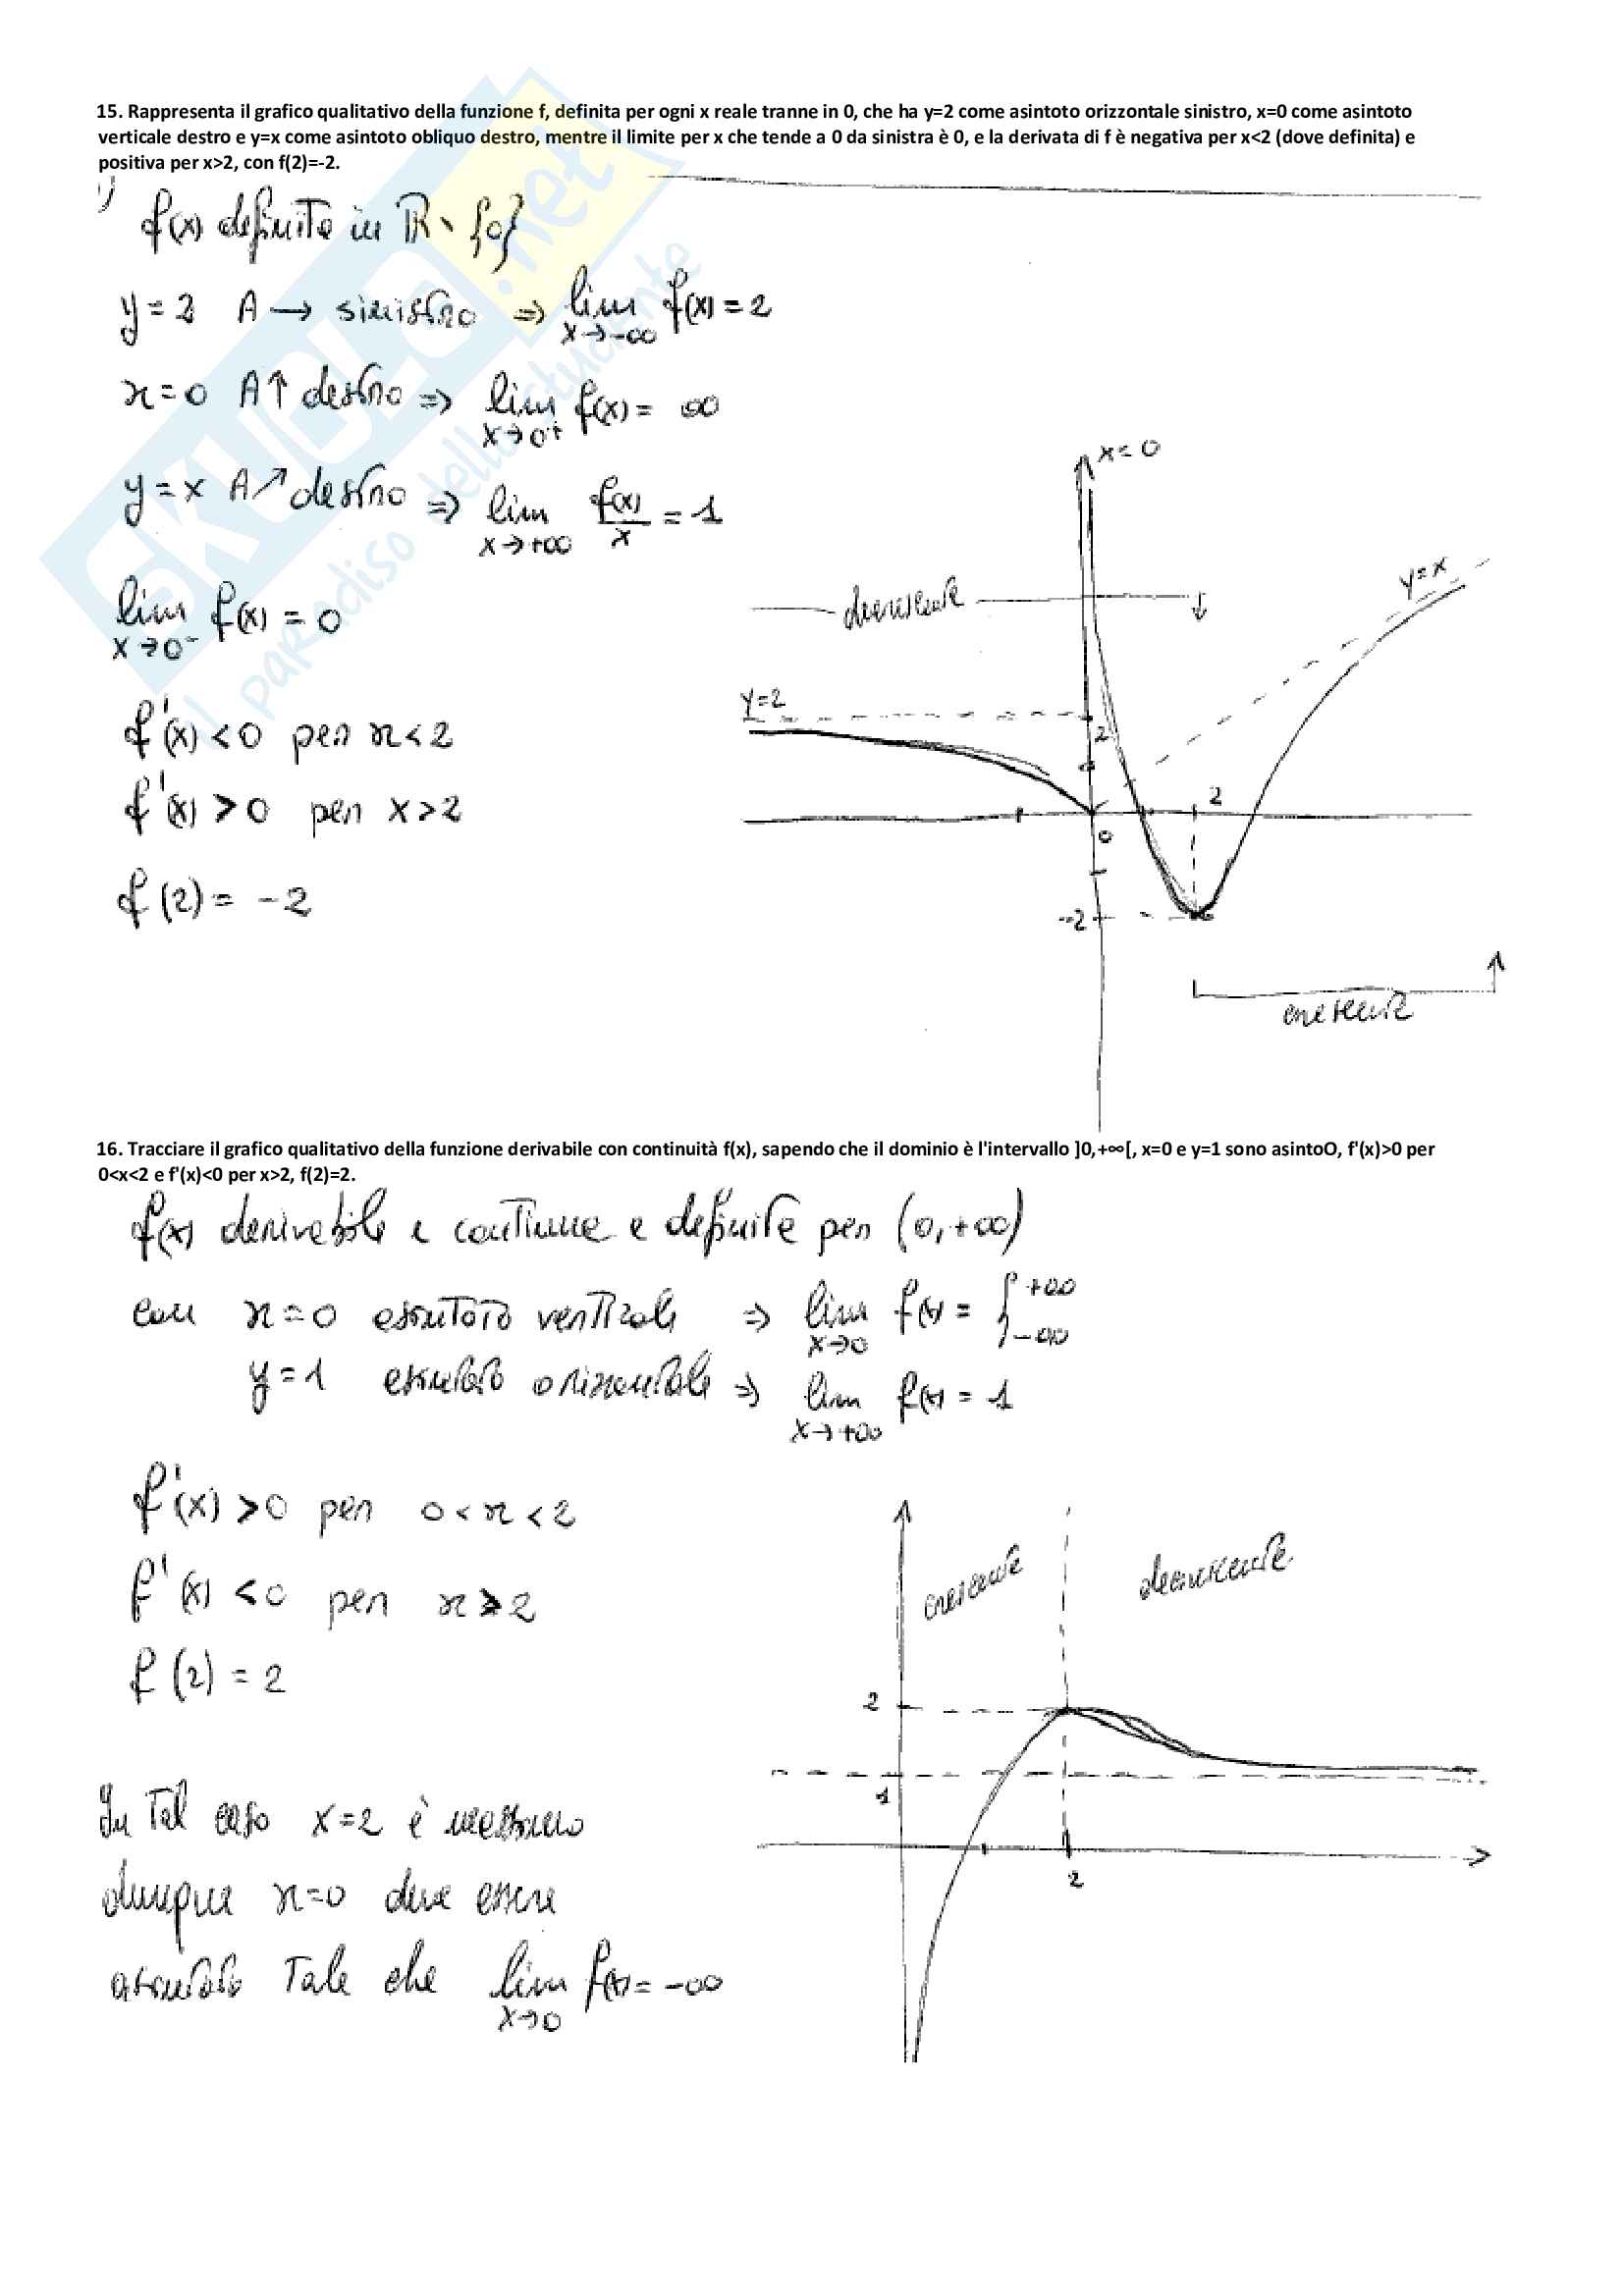 15. Rappresenta il grafico qualitativo della funzione f, definita per ogni x reale tranne in 0, che ha y=2 come asintoto orizzontale sinistro, x=0 come asintoto
verticale destro e y=x come asintoto obliquo destro, mentre il limite per x che tende a 0 da sinistra è 0, e la derivata di f è negativa per x<2 (dove definita) e
positiva per x>2, con f(2)=-2.
f(x) definita in ℝ \ {0}
y = 2 A → sinistro ⇒ lim x→-∞ f(x) = 2
x = 0 A↑ destro ⇒ lim x→0+ f(x) = ∞
y = x A↗ destro ⇒ lim x→+∞ f(x)/x = 1
lim x→0⁻ f(x) = 0
f'(x) < 0 per x < 2
f'(x) > 0 per x > 2
f(2) = -2
x=0
decrescente
y=x
y=2
2
2
0
-2
crescente
SKUOLA.net
il paradiso dello studente
16. Tracciare il grafico qualitativo della funzione derivabile con continuità f(x), sapendo che il dominio è l'intervallo ]0,+∞[, x=0 e y=1 sono asintoO, f'(x)>0 per
0<x<2 e f'(x)<0 per x>2, f(2)=2.
f(x) derivabile e continua e definita per (0,+∞)
con x=0 asintoto verticale ⇒ lim x→0 f(x) = { +∞ -∞
y=1 asintoto orizzontale ⇒ lim x→+∞ f(x) = 1
f'(x) > 0 per 0 < x < 2
f'(x) < 0 per x > 2
f(2) = 2
crescente
decrescente
2
1
2
In tal caso x=2 è massimo
dunque x=0 deve essere
asintoto tale che lim x→0 f(x) = -∞